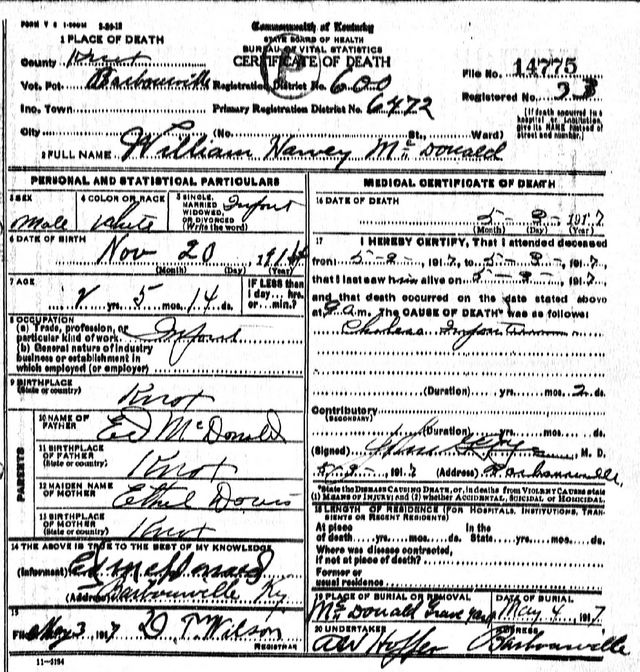 FORM V S 1-500M 3-30-12
Commonwealth of Kentucky
STATE BOARD OF HEALTH
BUREAU OF VITAL STATISTICS
CERTIFICATE OF DEATH
1 PLACE OF DEATH
County Knox
Vot. Pct. Barbourville Registration District No. 600
File No. 14775
Inc. Town Primary Registration District No. 6472
Registered No. 33
City (No. St., Ward)
[If death occurred in a hospital or institution, give its NAME instead of street and number.]
2 FULL NAME William Harvey Mc Donald
PERSONAL AND STATISTICAL PARTICULARS
3 SEX Male
4 COLOR OR RACE White
5 SINGLE, MARRIED, WIDOWED, OR DIVORCED (Write the word) Infant
6 DATE OF BIRTH
Nov 20, 1914
(Month) (Day) (Year)
7 AGE
2 yrs. 5 mos. 14 ds.
IF LESS than 1 day... hrs. or... min.?
8 OCCUPATION
(a) Trade, profession, or particular kind of work Infant
(b) General nature of industry business or establishment in which employed (or employer)
9 BIRTHPLACE
(State or country) Knox
PARENTS
10 NAME OF FATHER Ed McDonald
11 BIRTHPLACE OF FATHER (State or country) Knox
12 MAIDEN NAME OF MOTHER Ethel Davis
13 BIRTHPLACE OF MOTHER (State or country) Knox
14 THE ABOVE IS TRUE TO THE BEST OF MY KNOWLEDGE
(Informant) Ed McDonald
(Address) Barbourville Ky
15
Filed May 3, 1917 D T Wilson
REGISTRAR
11-3194
MEDICAL CERTIFICATE OF DEATH
16 DATE OF DEATH
5-3-1917
(Month) (Day) (Year)
17 I HEREBY CERTIFY, That I attended deceased
from 5-2-, 1917, to 5-3-, 1917,
that I last saw him alive on 5-3-, 1917,
and that death occurred on the date stated above
at a.m. The CAUSE OF DEATH* was as follows:
Cholera Infantum
(Duration) yrs. mos. 2 ds.
Contributory
(SECONDARY)
(Duration) yrs. mos. ds.
(Signed) M. D.
5-3-, 1917 (Address) Barbourville
*State the DISEASE CAUSING DEATH, or, in deaths from VIOLENT CAUSES state (1) MEANS OF INJURY; and (2) whether ACCIDENTAL, SUICIDAL OR HOMICIDAL.
18 LENGTH OF RESIDENCE (FOR HOSPITALS, INSTITUTIONS, TRANSIENTS OR RECENT RESIDENTS)
At place of death yrs. mos. ds. In the State yrs. mos. ds.
Where was disease contracted, if not at place of death?
Former or usual residence
19 PLACE OF BURIAL OR REMOVAL Mc Donald Grave yard
DATE OF BURIAL May 4, 1917
20 UNDERTAKER
ADDRESS Barbourville